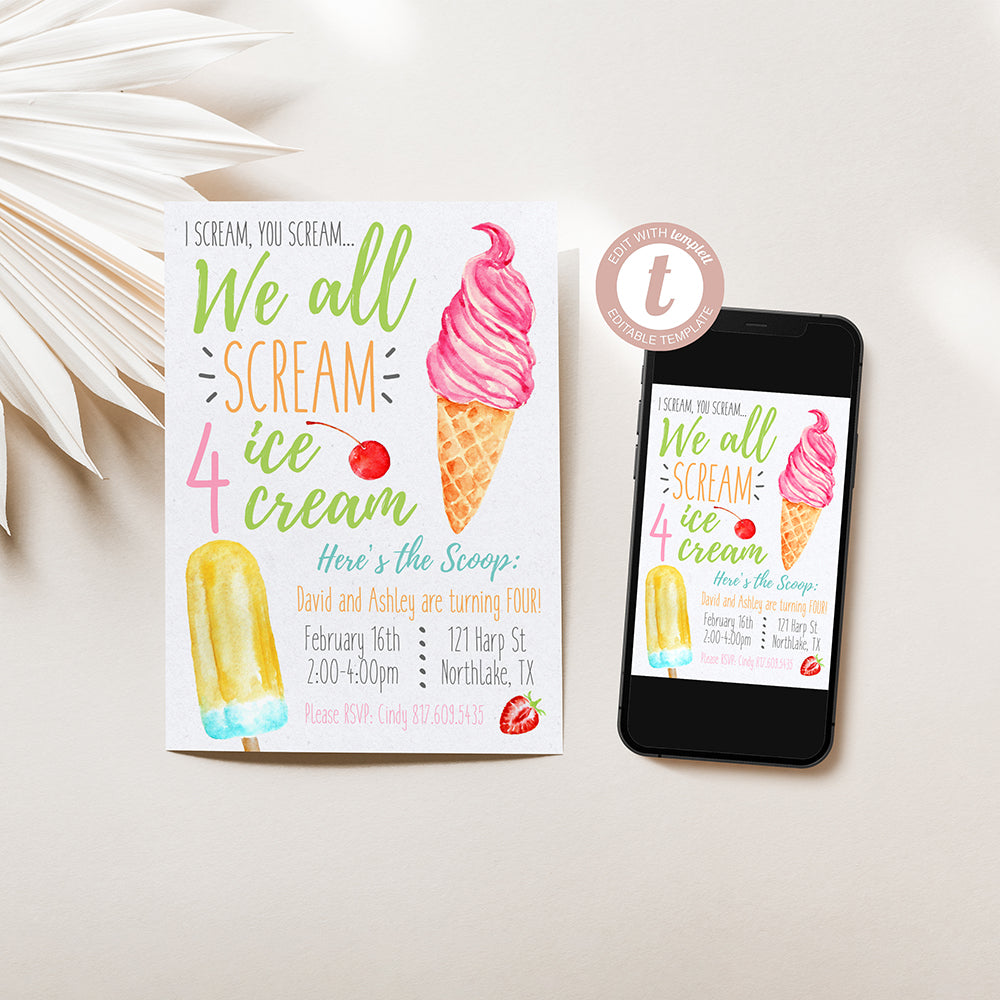 I SCREAM, YOU SCREAM...
We all
SCREAM
4 ice
cream
Here's the Scoop:
David and Ashley are turning FOUR!
February 16th
2:00-4:00pm
121 Harp St
NorthLake, TX
Please RSVP: Cindy 817.609.5435
EDIT WITH templett
t
EDITABLE TEMPLATE
I SCREAM, YOU SCREAM...
We all
SCREAM
4 ice
cream
Here's the Scoop:
David and Ashley are turning FOUR!
February 16th
2:00-4:00pm
121 Harp St
NorthLake, TX
Please RSVP: Cindy 817.609.5435